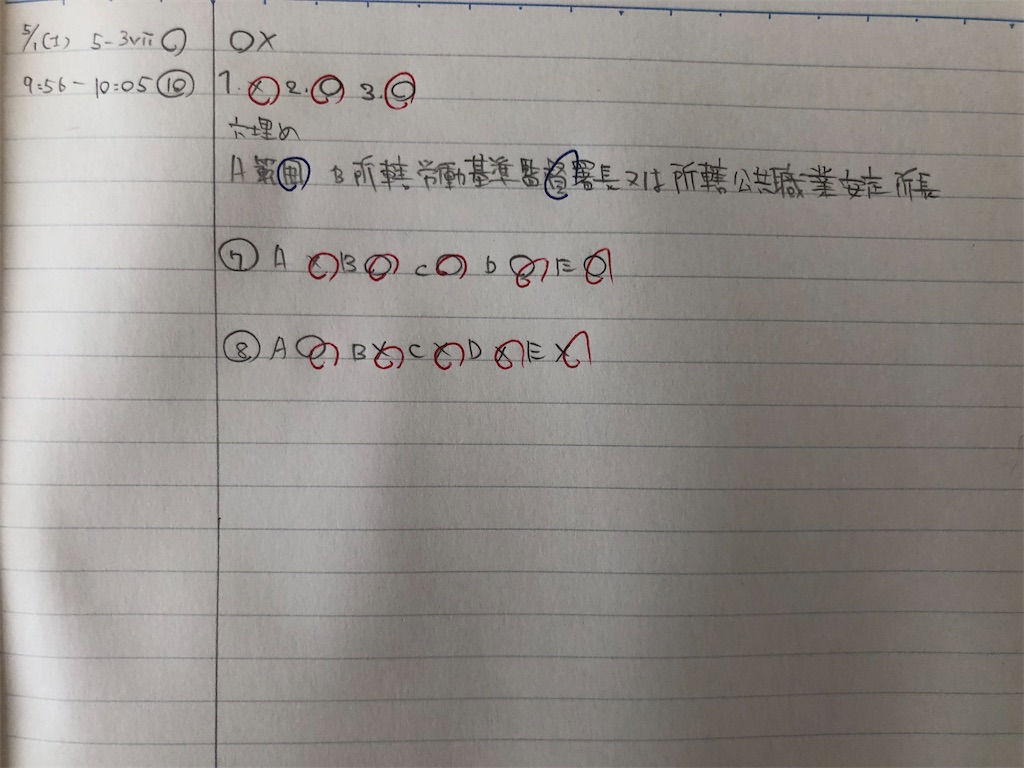 5/1(土) 5-3vii ○
9:56-10:05 ⑩
○×
1.× 2.○ 3.○
穴埋め
A 範囲 B 所轄労働基準監督署長又は所轄公共職業安定所長
⑦ A ○ B ○ C ○ D ○ E ○
⑧ A ○ B × C × D × E ×